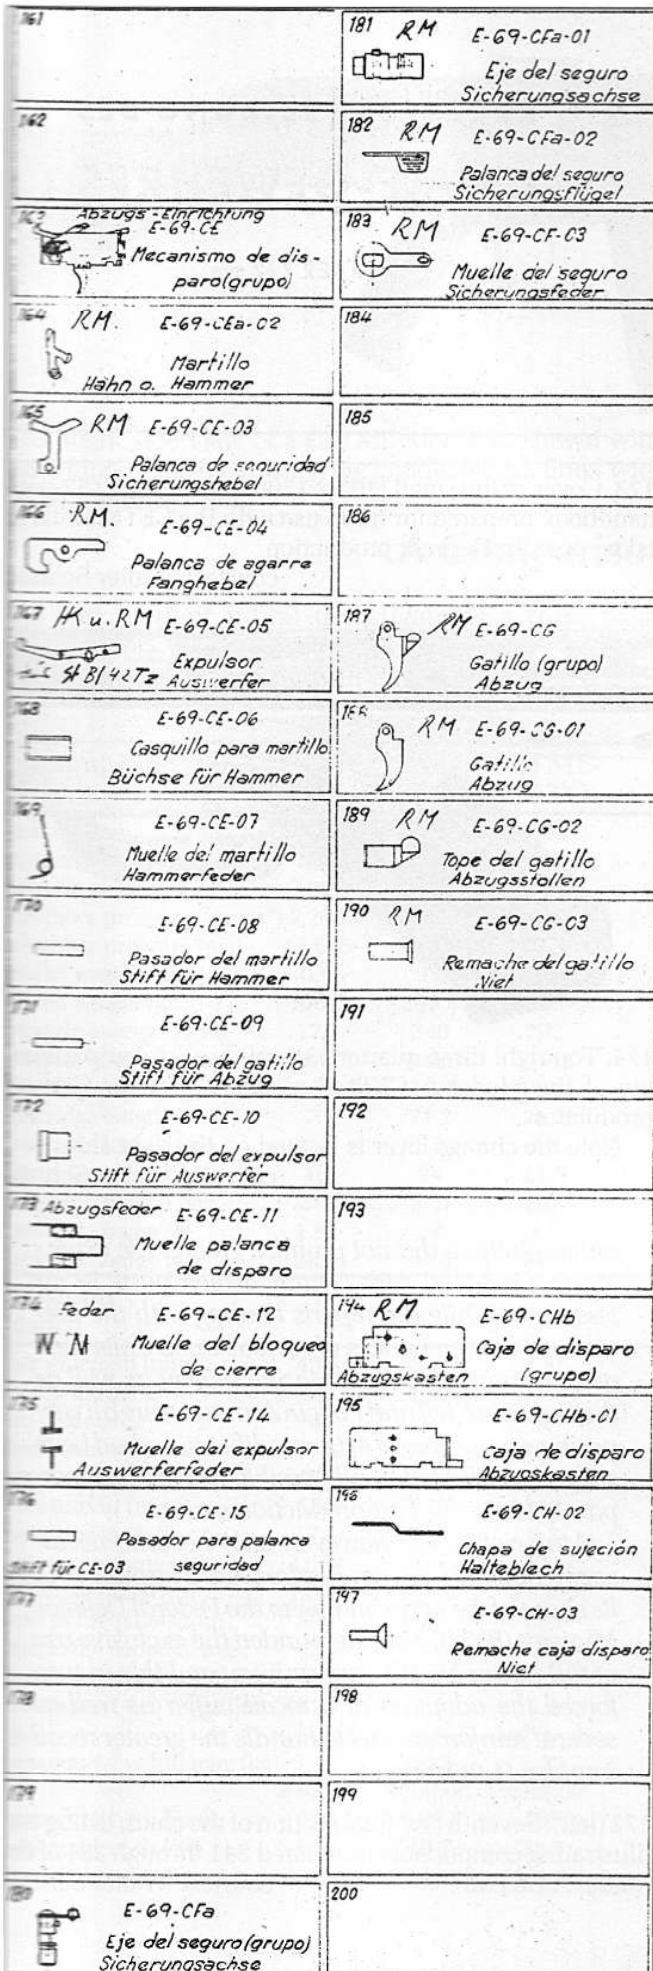 161
162
163
Abzugs-Einrichtung
E-69-CE
Mecanismo de dis-
paro (grupo)
164 RM. E-69-CEa-02
Martillo
Hahn o. Hammer
165 RM E-69-CE-03
Palanca de seguridad
Sicherungshebel
166 RM. E-69-CE-04
Palanca de agarre
Fanghebel
167 HK u. RM E-69-CE-05
Expulsor
St Bl 42 Tz Auswerfer
168 E-69-CE-06
Casquillo para martillo
Büchse für Hammer
169 E-69-CE-07
Muelle del martillo
Hammerfeder
170 E-69-CE-08
Pasador del martillo
Stift für Hammer
171 E-69-CE-09
Pasador del gatillo
Stift für Abzug
172 E-69-CE-10
Pasador del expulsor
Stift für Auswerfer
173 Abzugsfeder E-69-CE-11
Muelle palanca
de disparo
174 Feder E-69-CE-12
Muelle del bloqueo
de cierre
175 E-69-CE-14
Muelle del expulsor
Auswerferfeder
176 E-69-CE-15
Pasador para palanca
Stift für CE-03 seguridad
177
178
179
180 E-69-CFa
Eje del seguro (grupo)
Sicherungsachse
181 RM E-69-CFa-01
Eje del seguro
Sicherungsachse
182 RM E-69-CFa-02
Palanca del seguro
Sicherungsflügel
183 RM E-69-CF-03
Muelle del seguro
Sicherungsfeder
184
185
186
187 RM E-69-CG
Gatillo (grupo)
Abzug
188 RM E-69-CG-01
Gatillo
Abzug
189 RM E-69-CG-02
Tope del gatillo
Abzugsstollen
190 RM E-69-CG-03
Remache del gatillo
Niet
191
192
193
194 RM E-69-CHb
Caja de disparo
Abzugskasten (grupo)
195 E-69-CHb-01
Caja de disparo
Abzugskasten
196 E-69-CH-02
Chapa de sujeción
Halteblech
197 E-69-CH-03
Remache caja disparo
Niet
198
199
200